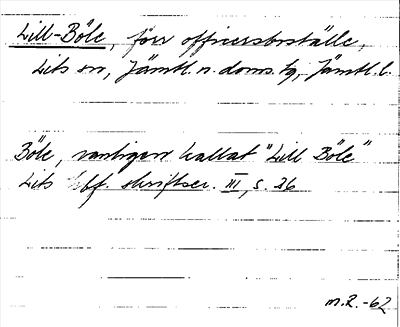 Lill-Böle, förr officersboställe,
Lits sn, Jämtl. n. doms. tg, Jämtl. l.
Böle, vanligen kallat "Lill Böle"
Lits hbf. skriftser. III, s. 36
M.R. -62